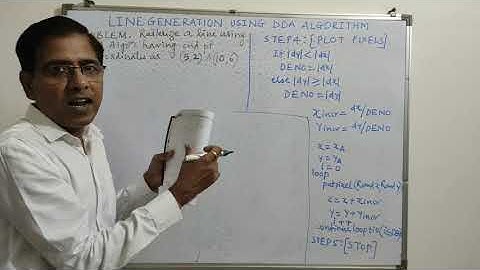 LINE GENERATION USING DDA ALGORITHM
BLEM. Realize a line using
Algo. having end pt
ordinates as (5,2) & (10,6)
STEP4:[PLOT PIXELS]
If |dy|<|dx|
DENO=|dx|
else |dy|≥|dx|
DENO=|dy|
xincr = dx/DENO
Yincr = dy/DENO
x = xA
y = yA
i = 0
loop
putpixel(Round x, Round y)
x = x + xincr
y = y + Yincr
i++
continue loop till
STEP5:[STOP]